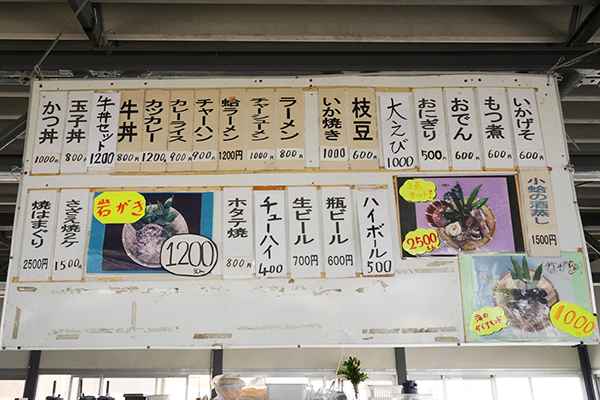 いかげそ
600
もつ煮
600
おでん
600
おにぎり
500
大えび
1000
枝豆
600
いか焼き
1000
ラーメン
800
チャーシューメン
1000
蛤ラーメン
1200
チャーハン
900
カレーライス
900
カツカレー
1200
牛丼
800
牛丼セット
1200
玉子丼
800
かつ丼
1000
小蛤の酒蒸し
1500円
2500
ハイボール
500
瓶ビール
600円
生ビール
700円
チューハイ
400
ホタテ焼
800
岩がき
1200
さざえ焼2ケ
1500
焼はまぐり
2500円
ながらみ
海のダイヤモンド
1000